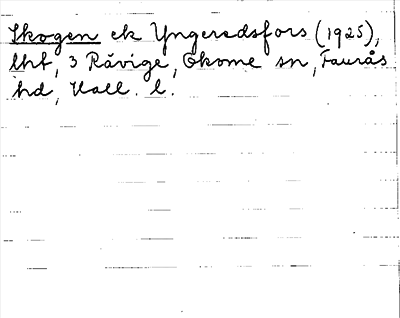 Skogen ek Yngeredsfors (1925),
lht, 3 Rävige, Okome sn, Faurås
hd, Hall. l.